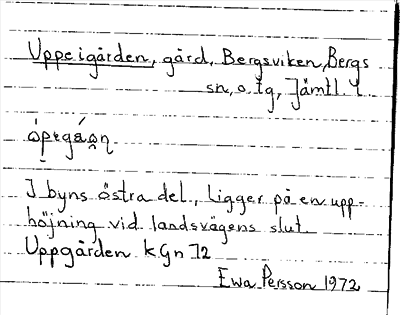 Uppeigården, gård, Bergsviken, Bergs
sn, o. tg, Jämtl. l
I byns östra del, ligger på en upp-
höjning vid landsvägens slut.
Uppgården K Gn 72
Ewa Persson 1972